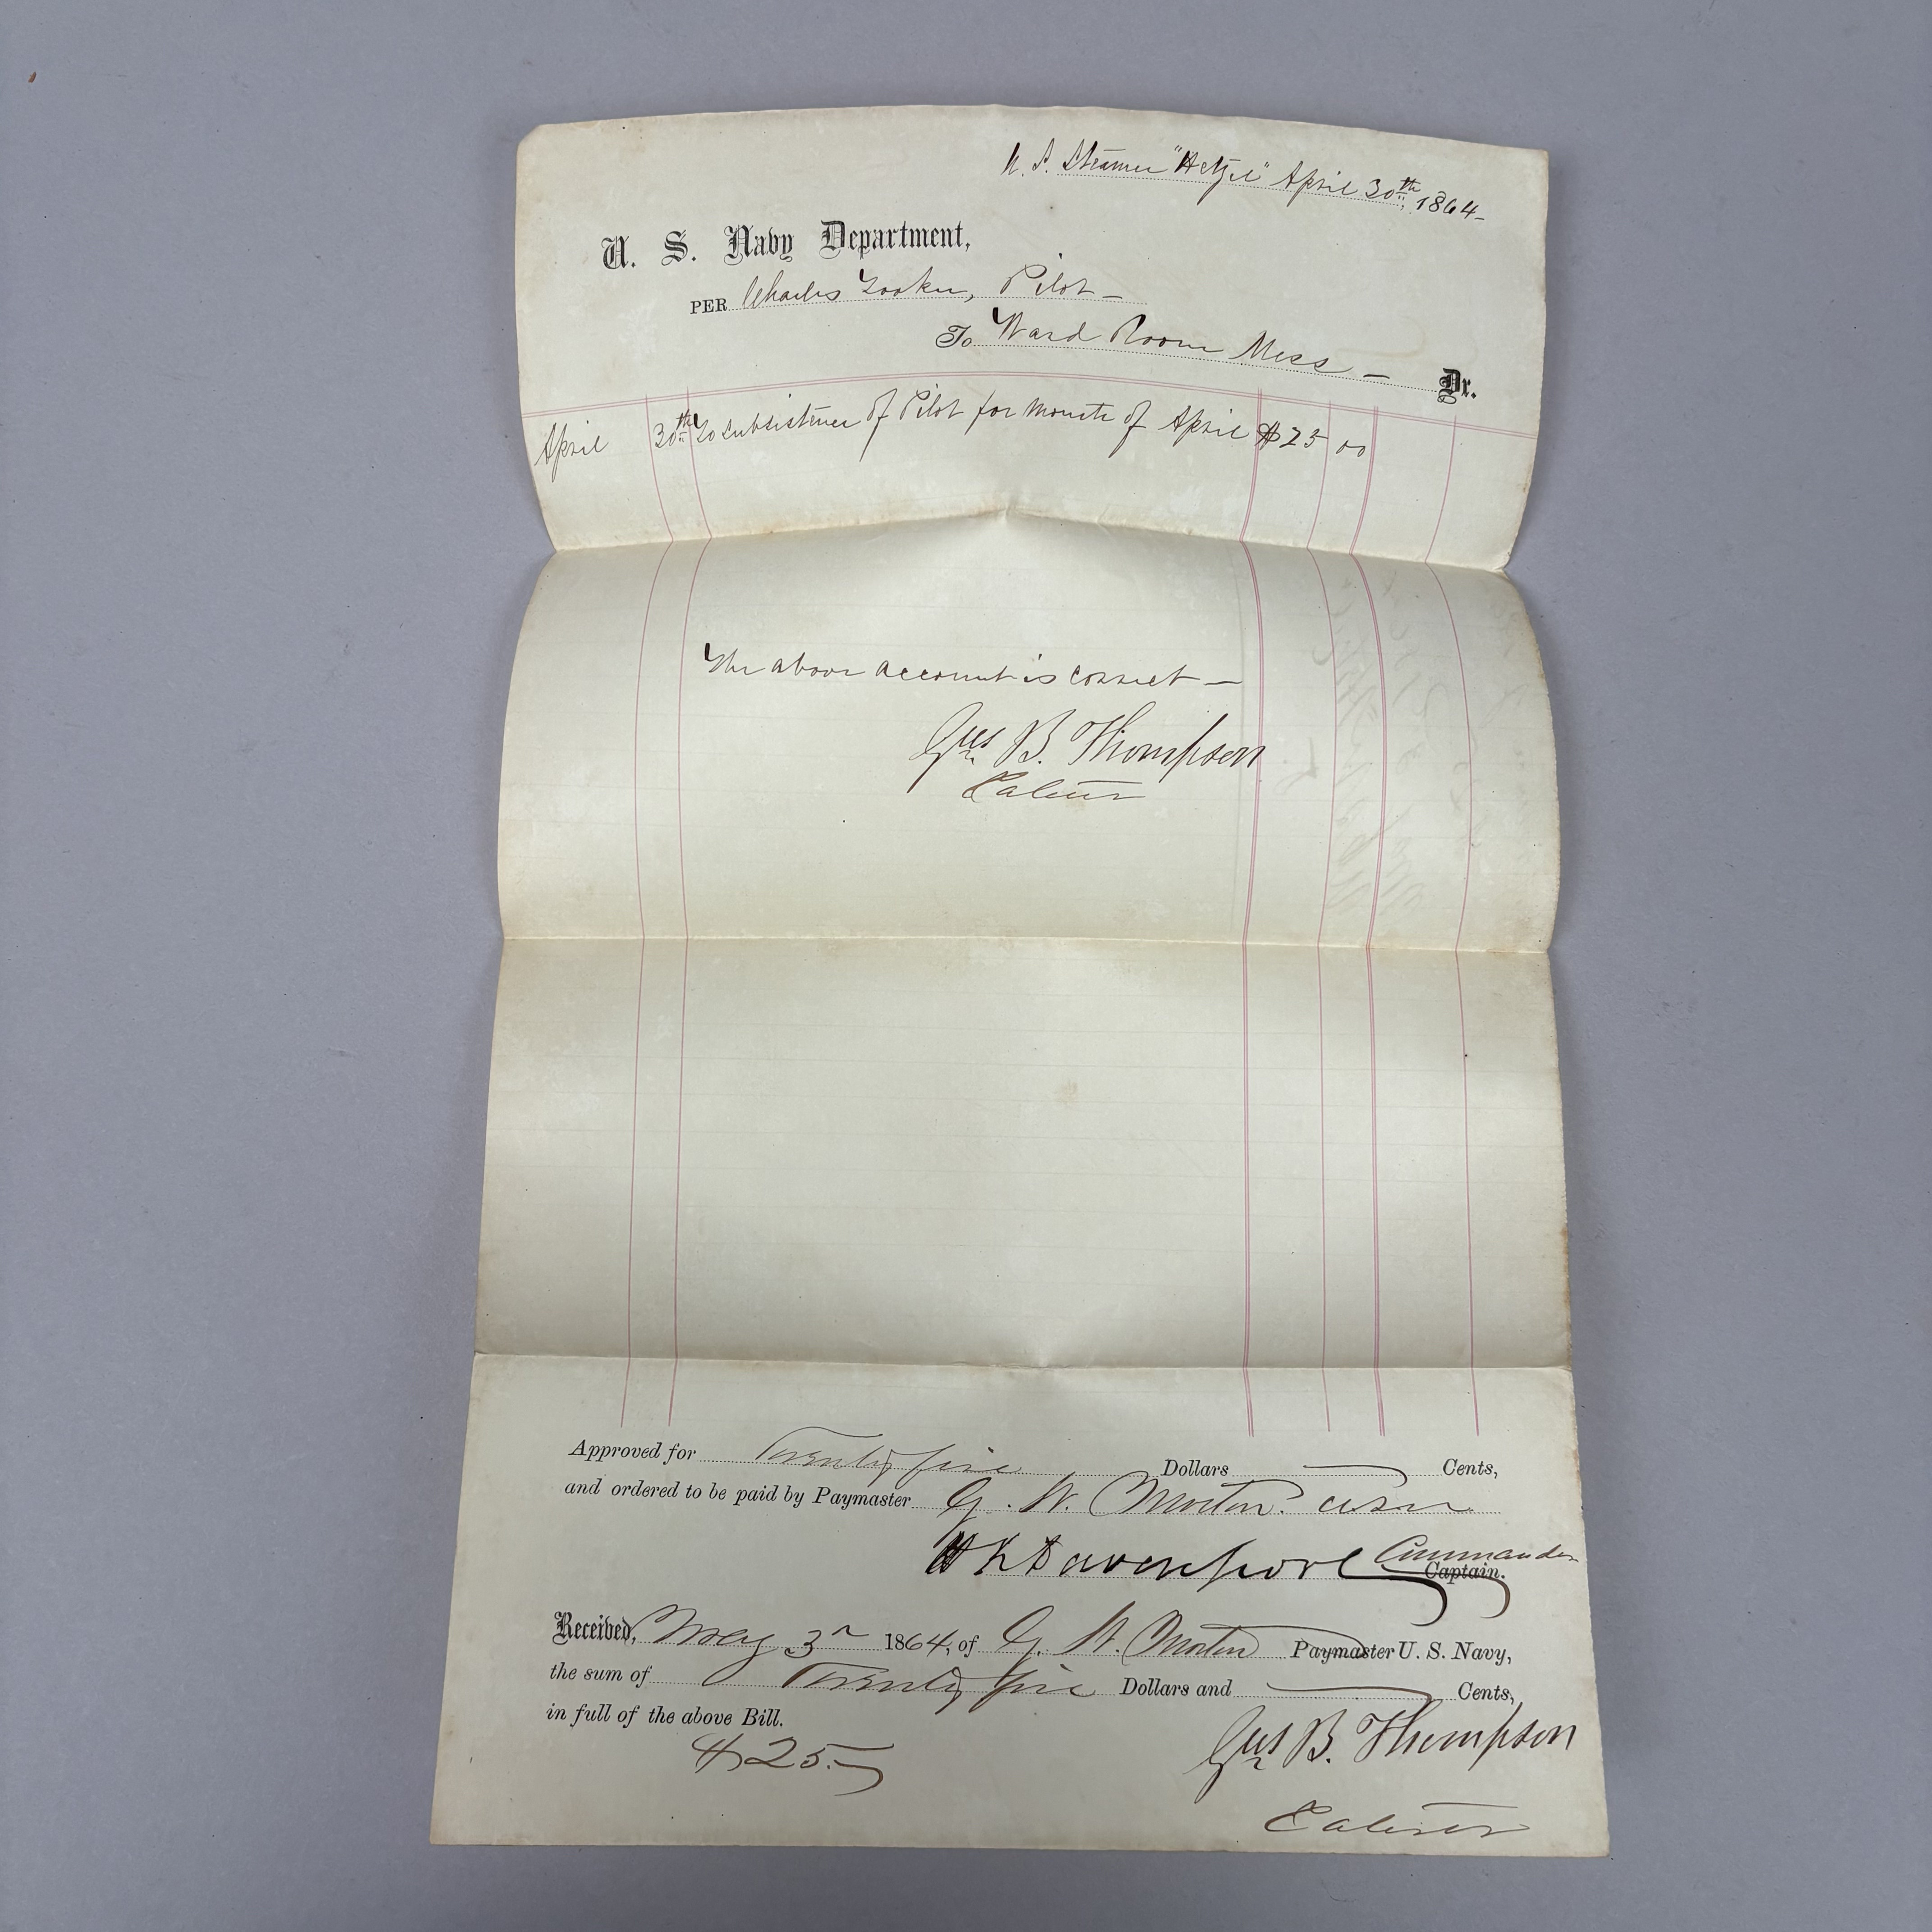 U. S. Steamer "Hetzel" April 30th, 1864-
U. S. Navy Department,
PER Charles Tooker, Pilot -
To Ward Room Mess - Dr.
April 30th To subsistence of Pilot for month of April $25 00
The above account is correct -
Gus B. Thompson
Caterer
Approved for Twenty five Dollars — Cents,
and ordered to be paid by Paymaster G. W. Morton. USN
H K Davenport Commander
Captain.
Received, May 3d 1864, of G. W. Morton Paymaster U. S. Navy,
the sum of Twenty five Dollars and — Cents,
in full of the above Bill.
$25.-
Gus B. Thompson
Caterer